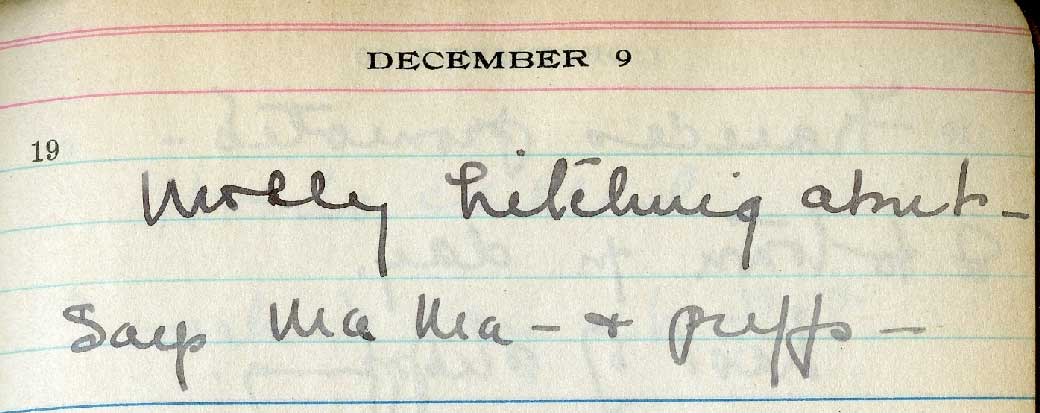 DECEMBER 9
19
Molly hitching about -
Says Ma Ma - & puffs -